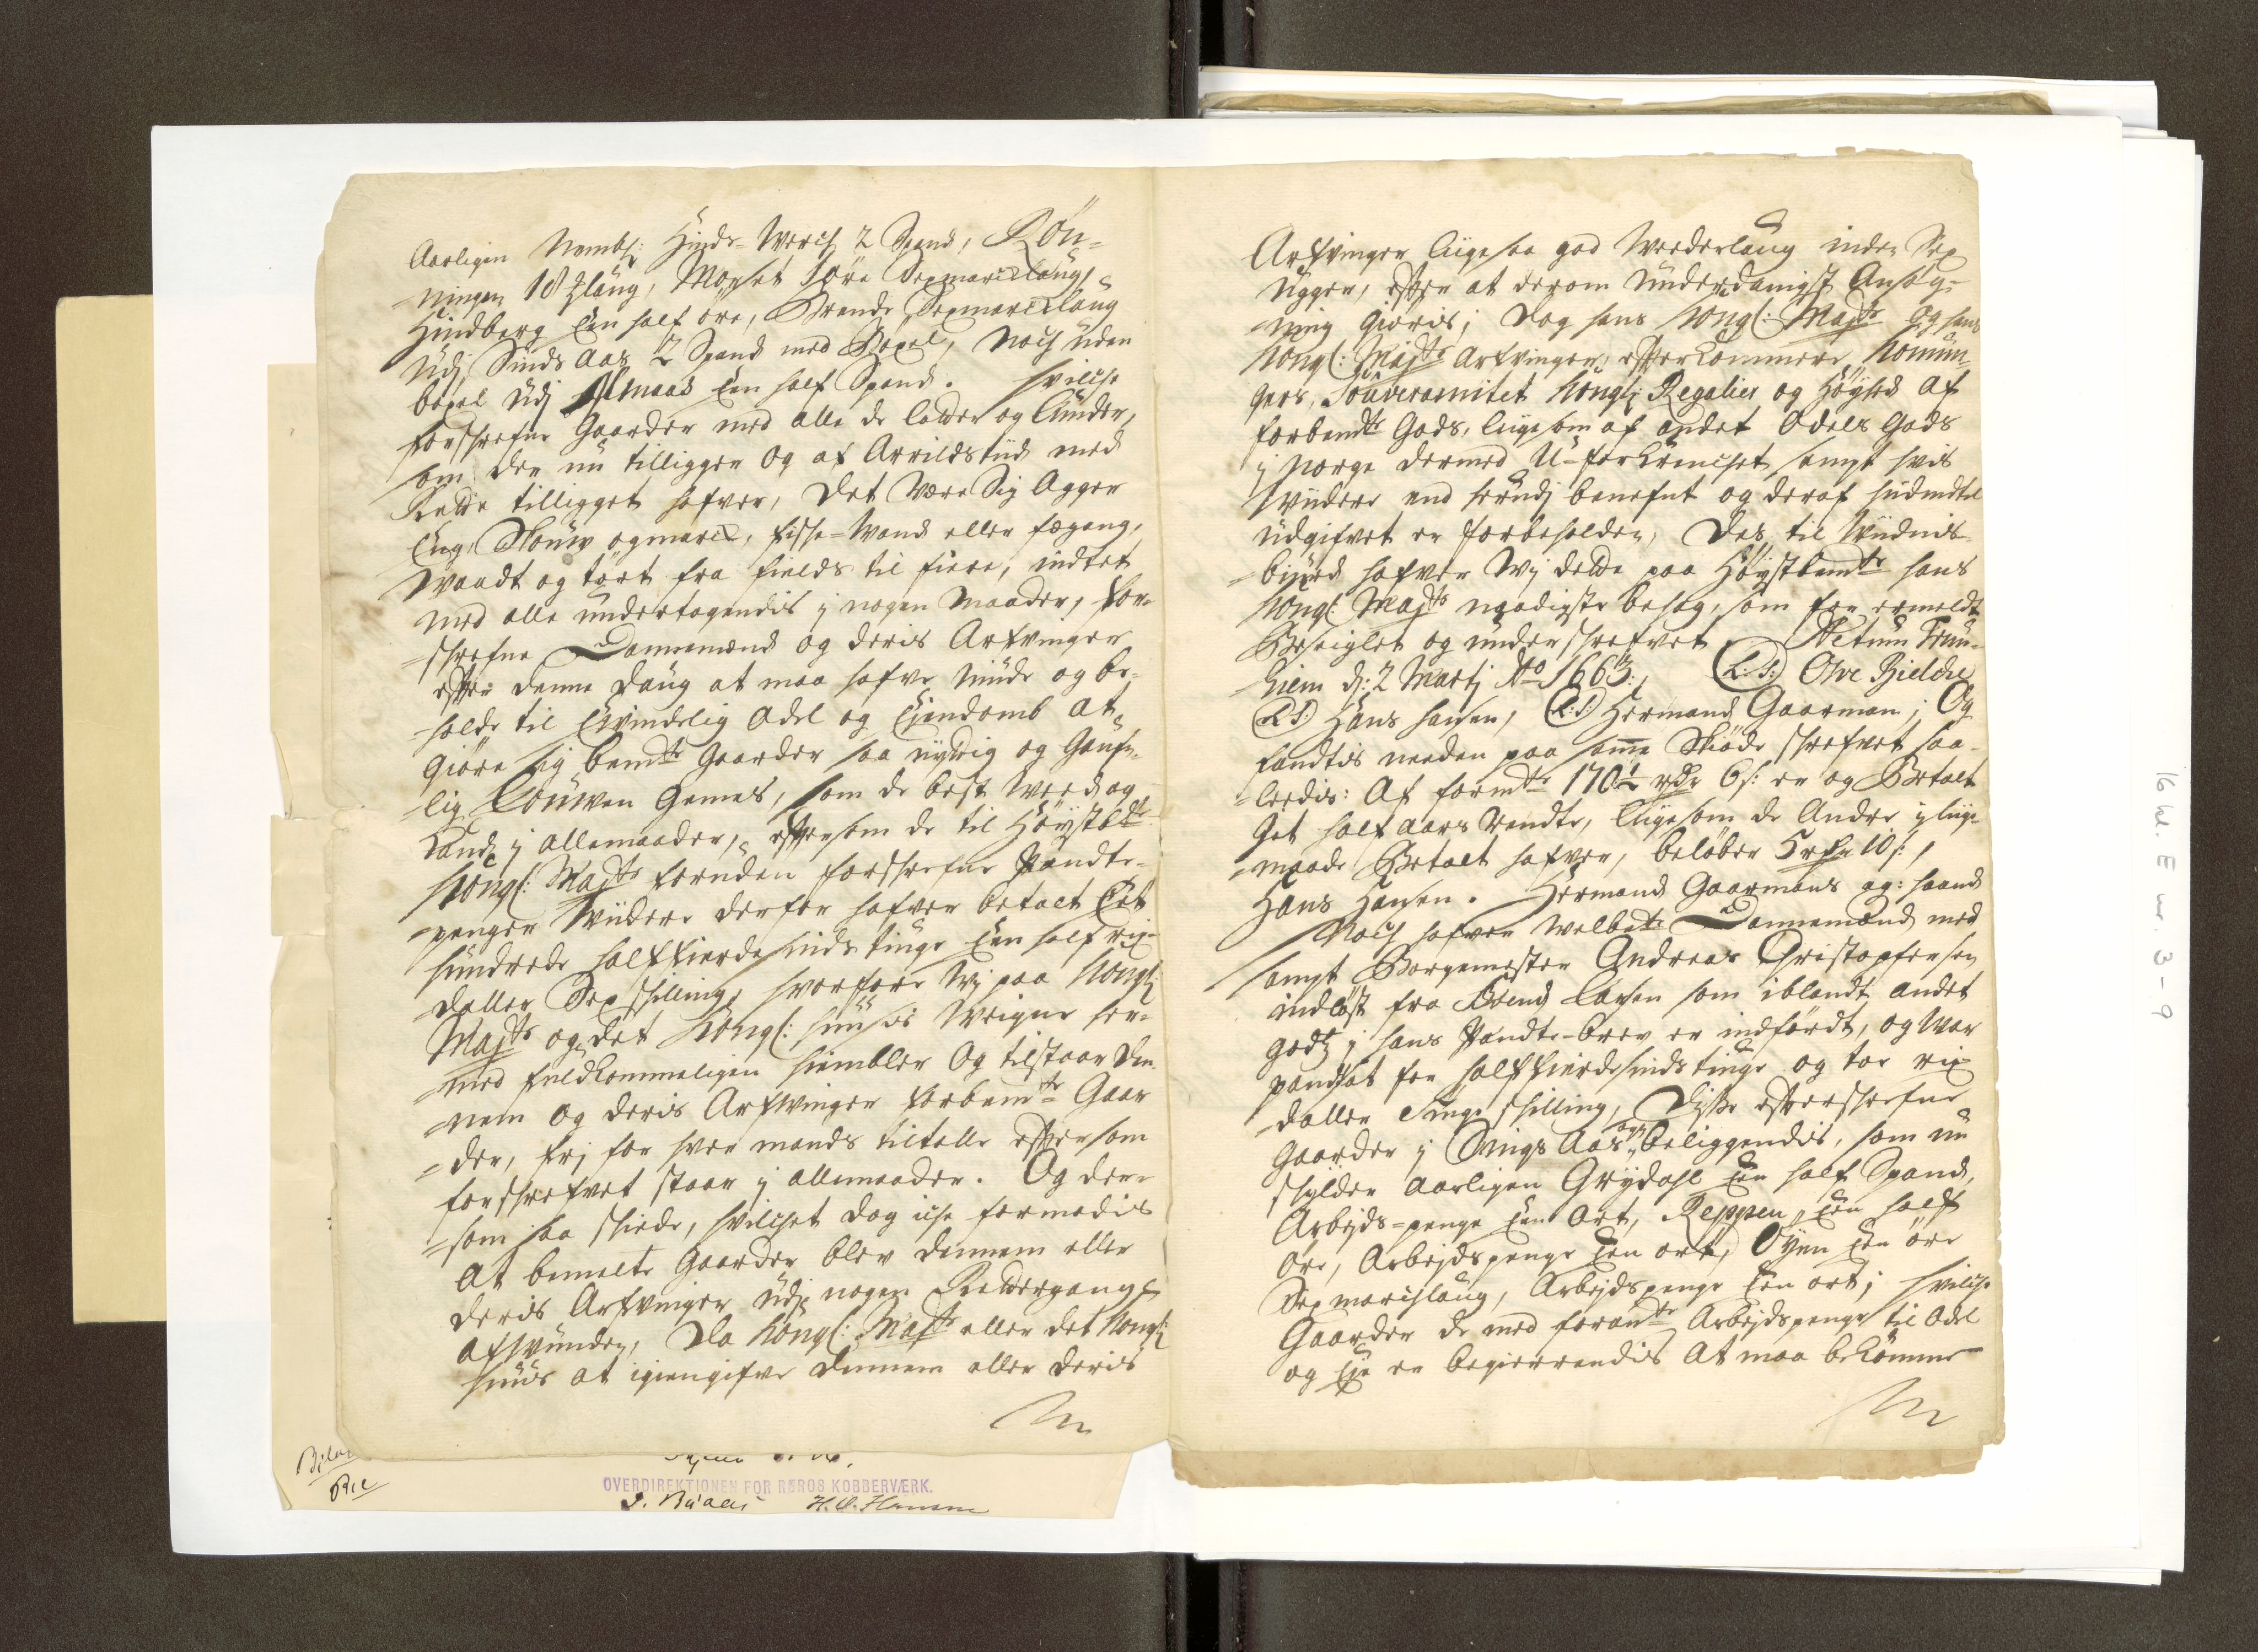 Aarligen Nembl: Hinds-Werch 2 Spand, Rön-
ningen 18 ʒlaug, Morset 1 öre Sexmarcklaug,
Hindberg Een half öre, Brende Sexmarcklaug
Udj Sinds Aas 2 Spand med Böxel, Noch uden
böxel udj Almaas Een half Spand. Hvilche
forschrefne Gaarder med alle de lodder og lunder,
som der nu tilligger og af Arrildstiid med
Rette tilligget hafver, det være sig Agger
Eng, Skouw og march, fische-Wand eller fægang,
Waadt og tört fra fields til fiere, indtet
med alle undertagendis j nogen Maader, for-
schrefne Dannemænd og deris Arfvinger
efter denne daug at maa hafve niude og be-
holde til Ewindelig Odel og Eiendomb at
giöre sig bemte Gaarder saa nyttig og gaufn-
lig Louwen gemes, som de best Weed og
kand j allemaader, eftersom de til Höystbte
Kongl: Majts foruden forschrefne Pandte-
penger Wiidere derfor hafver betalt Eet
hundrede halffierdesindstiuge Een half rix-
daller Sex schilling, hvorfore Wj paa Kongl:
Majts og det Kongl: huuses Weigne her-
med fuldkommeligen hiembler Og tilstaar den-
nem og deris Arfwinger forbemte Gaar-
der, frj for hver mands tiltalle eftersom
forschrefvet staar j allemaader. Og der-
som saa skiede, hvilchet dog iche formodis
At bemelte Gaarder blev dennem eller
deris Arfvinger udj nogen Rettergang
afvunden, da Kongl: Majts eller det Kongl:
huus at igiengifve dennem eller deris
Arfvinger liigesaa god Wederlaug inden Sex
Ugger, efter at derom underdanigst Ansög-
ning giöris; dog hans Kongl: Majts og hans
Kongl: Majts Arfvinger, efterkommere Konun-
gers, Souverainitet Kongl: Regalier og Höyhed af
forbemte Gods, liigesom af andet Odels Gods
j Norge dermed U-forkrencket sampt hvis
Wiidere end herudj benefnt og deraf hidindtil
udgifvet er forbeholden, des til Widnis-
biurd hafver Wj dette paa Höystbemte hans
Kongl: Majts naadigste behag, som for ermeldt
Beseiglet og underschrefvet Actum Trun-
hiem d: 2 Martj Ao 1663, (L.S.) Ove Bielche
(L.S.) Hans Hansen, (L.S.) Hermand Gaarman; Og
fandtis neden paa samme Skiöde schrefvet saa-
ledis: Af formte 170½ rdr 6 s: er og Betalt
Got half aars Rendte, liigesom de Andre j liige-
maade Betalt hafver, belöber 5 rdr 10 s:,
Hans Hansen. Hermand Gaarmans eg: haand
Noch hafver Welbte Dannemænd med
sampt Borgemester Andreas Christophersen
indlöst fra Svend Larsen som iblandt andet
godtz j hans Pandte-brev er indfördt, og War
pandsat for halffierdesindstiuge og toe rix
daller Siuge schilling, disse efterschrefne
Gaarder j Sings Aas beliggendis, som nu
schylder Aarligen Grydahl Een half Spand,
Arbejds-penge Een ort, Reppen Een half
Öre, Arbejdspenge Een ort, Öyen Een öre
Sexmarchlaug, Arbejdspenge Een ort; Hvilche
Gaarder de med forante Arbejdspenge til Odel
og Eje er begierrendis At maa bekomme
OVERDIREKTIONEN FOR RØROS KOBBERVÆRK.
H. O. Hansen
16 kl. E nr. 3-9